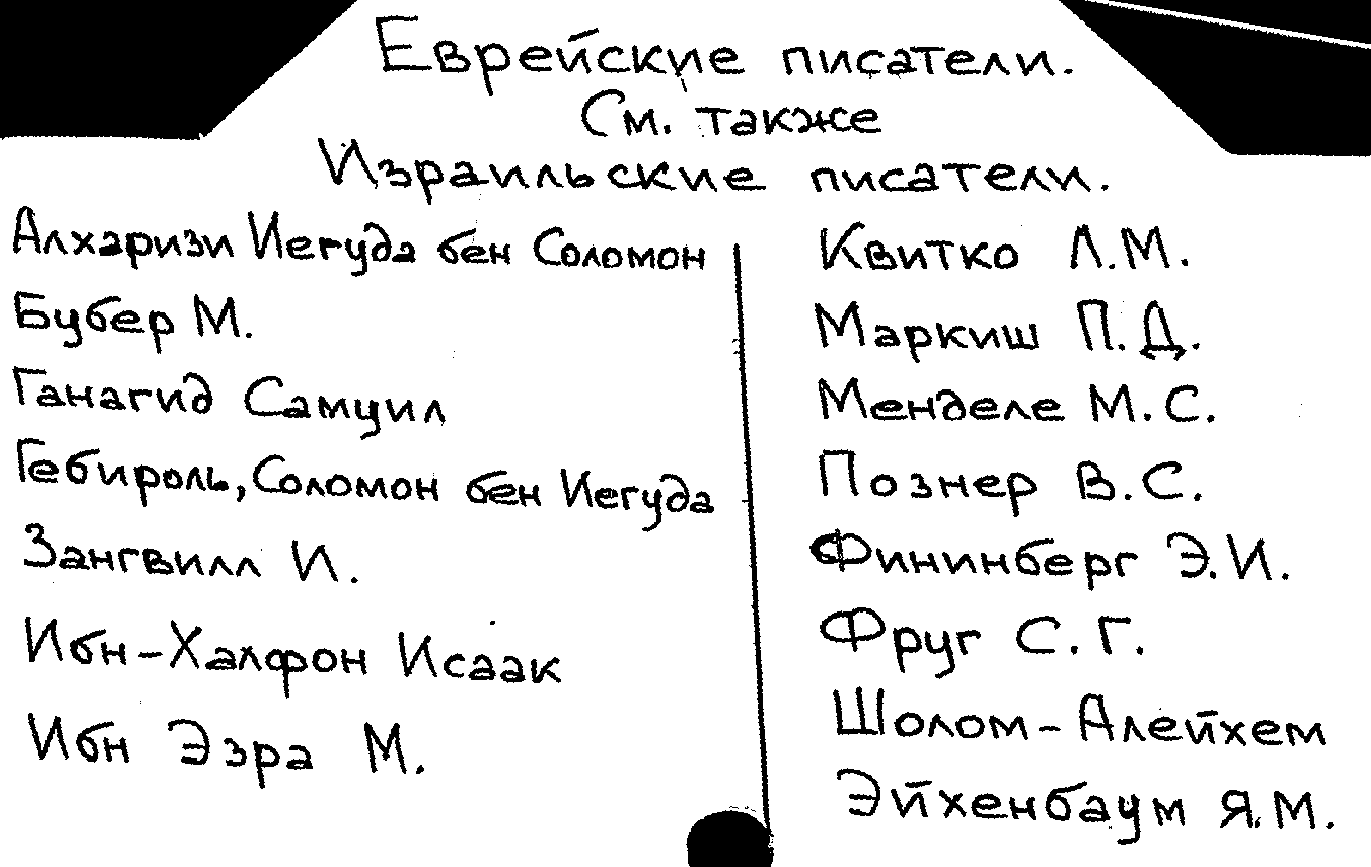 Еврейские писатели.
См. также
Израильские писатели.
Алхаризи Иегуда бен Соломон
Бубер М.
Ганагид Самуил
Гебироль, Соломон бен Иегуда
Зангвилл И.
Ибн-Халфон Исаак
Ибн Эзра М.
Квитко Л.М.
Маркиш П.Д.
Менделе М.С.
Познер В.С.
Фининберг Э.И.
Фруг С.Г.
Шолом-Алейхем
Эйхенбаум Я.М.